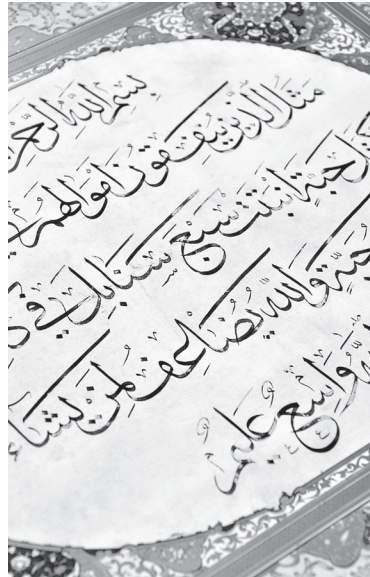 بِسْمِ اللَّهِ الرَّحْ
مَثَلُ الَّذِينَ يُنْفِقُونَ أَمْوَالَهُمْ
حَبَّةٍ أَنْبَتَتْ سَبْعَ سَنَابِلَ فِي
حَبَّةٍ وَاللَّهُ يُضَاعِفُ لِمَنْ يَشَا
وَاسِعٌ عَلِيمٌ